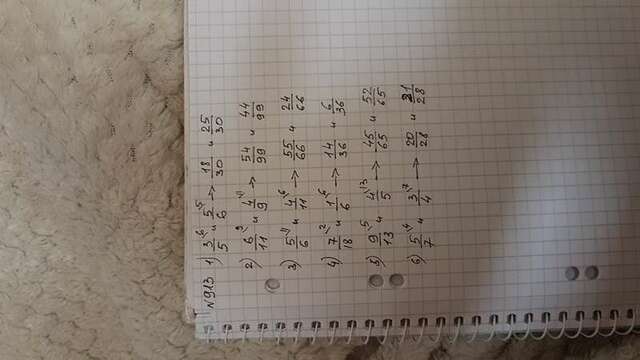 №913 1) 3/5 \6 и 5/6 \5 → 18/30 и 25/30
2) 6/11 \9 и 4/9 \11 → 54/99 и 44/99
3) 5/6 \11 и 4/11 \6 → 55/66 и 24/66
4) 7/18 \2 и 1/6 \6 → 14/36 и 6/36
5) 9/13 \5 и 4/5 \13 → 45/65 и 52/65
6) 5/7 \4 и 3/4 \7 → 20/28 и 21/28